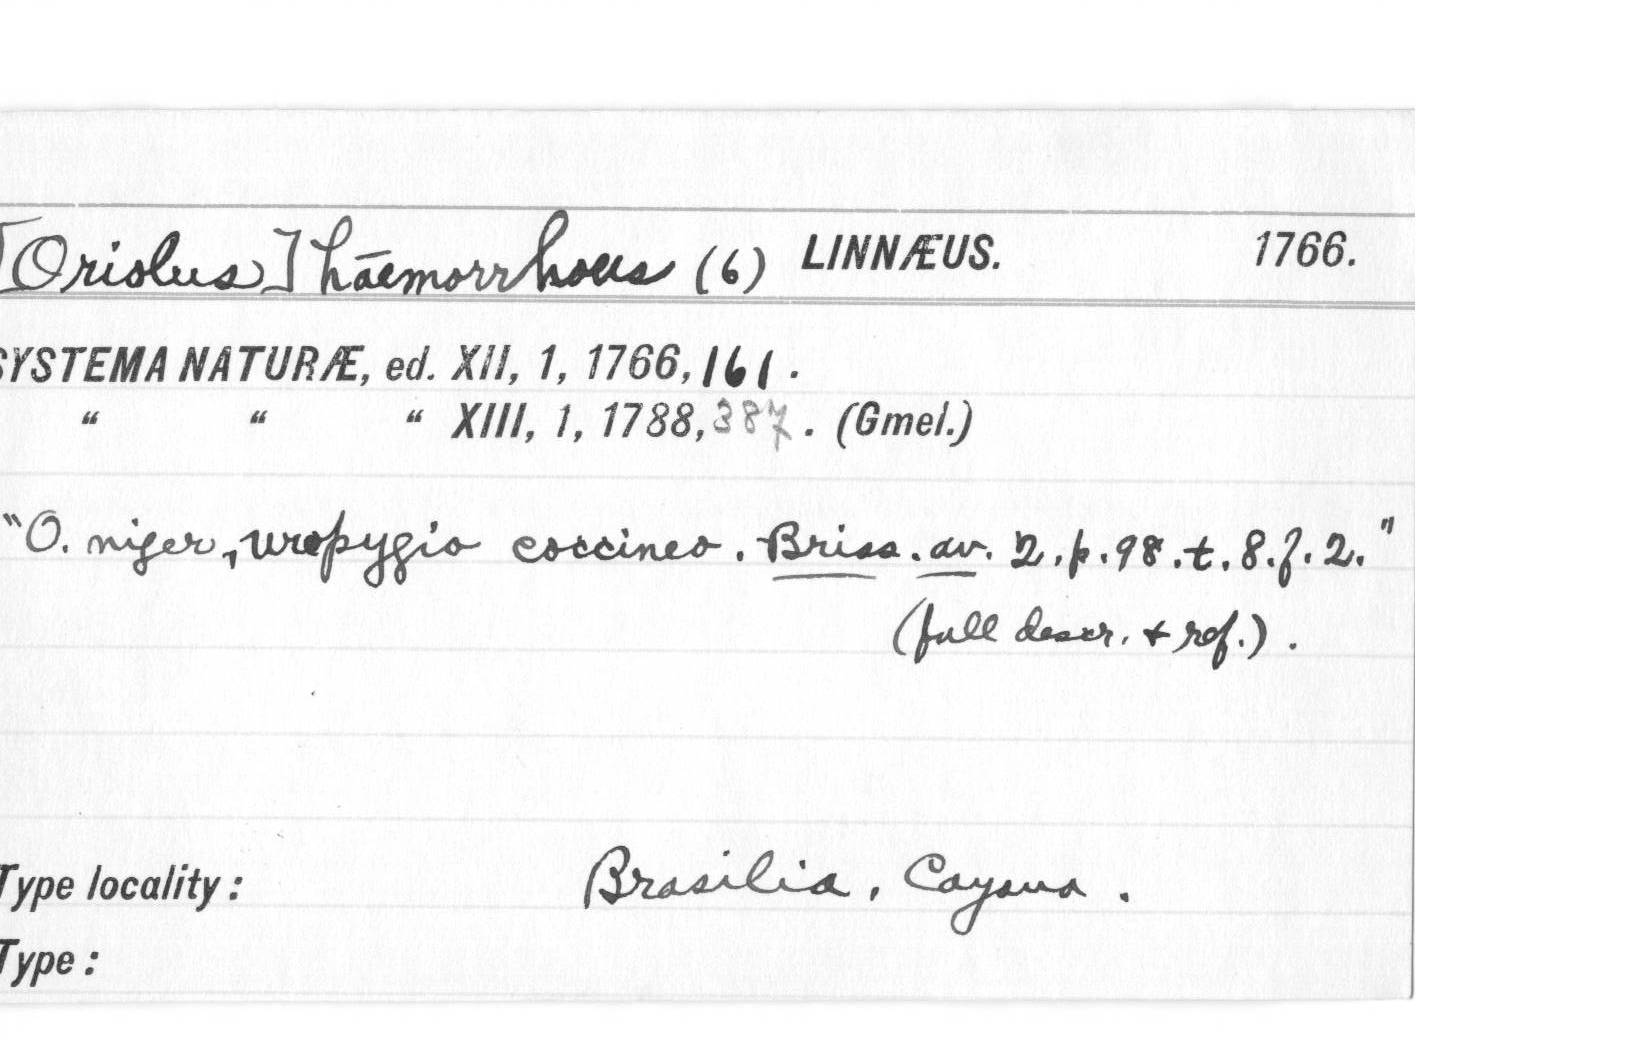 [Oriolus] hāemorrhous (6) LINNÆUS. 1766.
SYSTEMA NATURÆ, ed. XII, 1, 1766, 161.
“ “ “ XIII, 1, 1788, 387. (Gmel.)
"O. niger, uropygio coccineo. Briss. av. 2. p. 98. t. 8. f. 2."
(full descr. + ref.).
Type locality: Brasilia, Cayana.
Type: